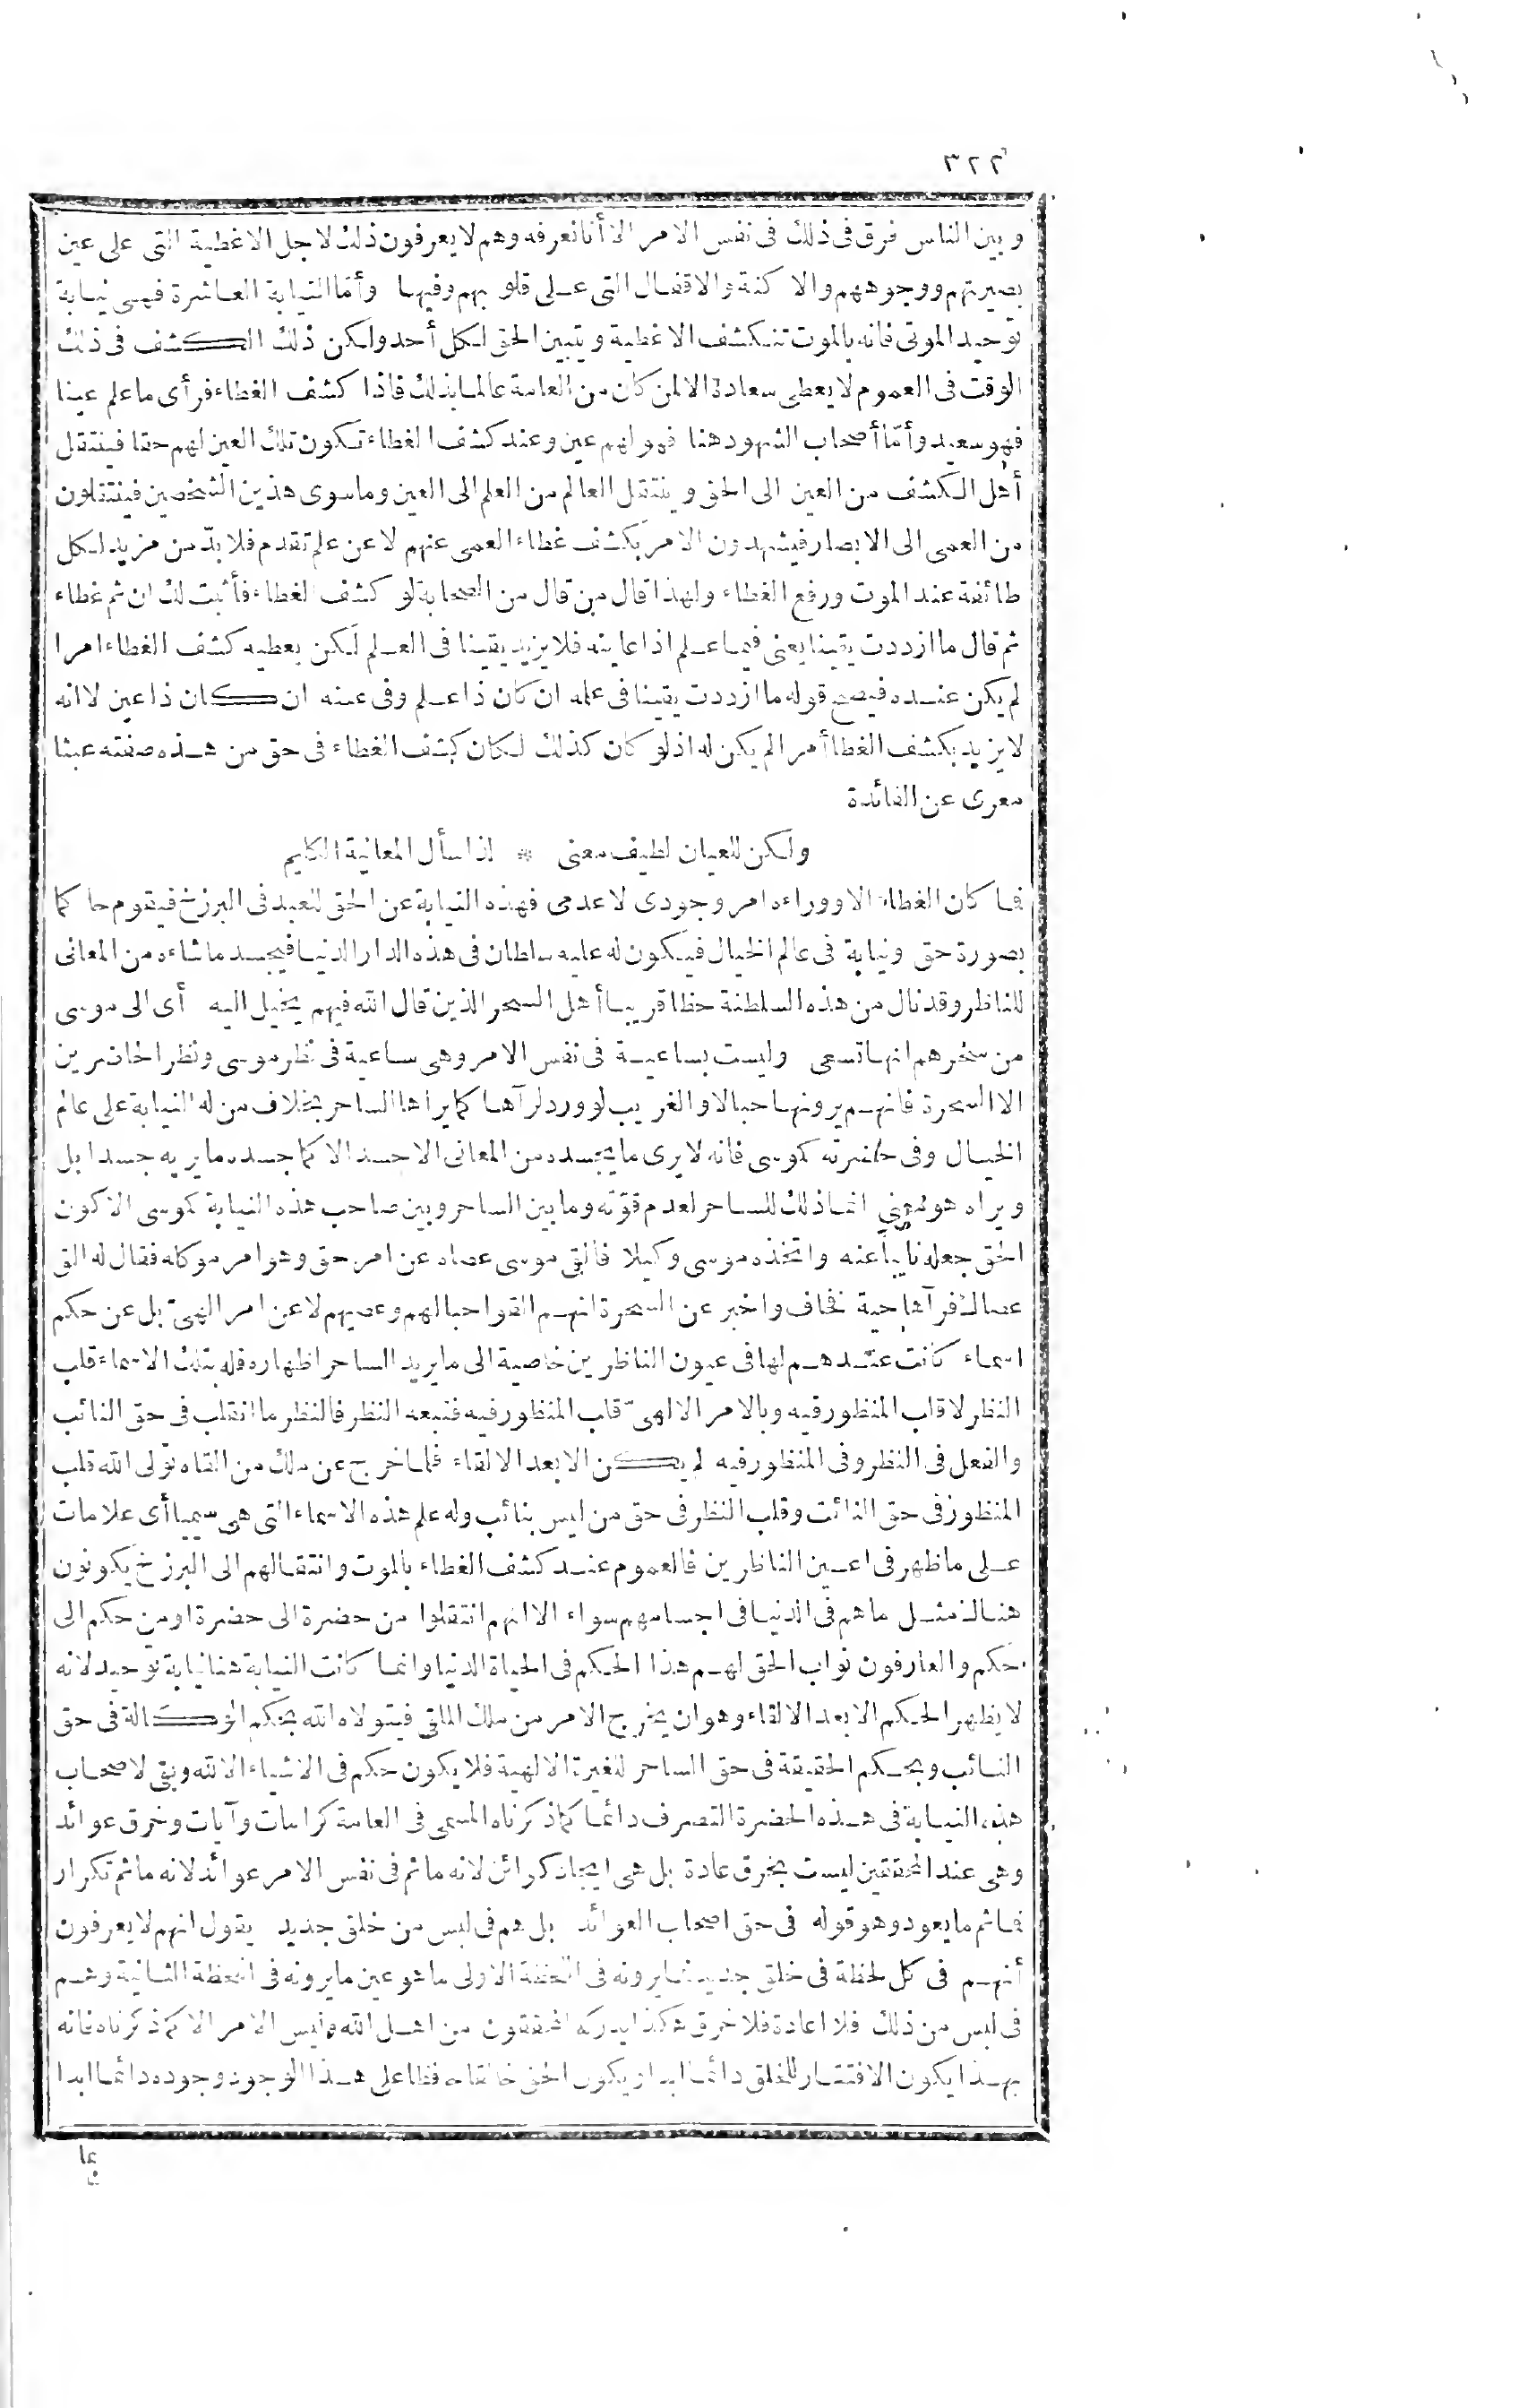 ٣٢٢
وبين الناس فرق فى ذلك فى نفس الامر الا أنا نعرفه وهم لا يعرفون ذلك لاجل الاغطية التى على عين
بصيرتهم ووجوههم والاكنة والاقفال التى على قلوبهم وفيها وأما النيابة العاشرة فهى نيابة
توحيد الموتى فانه بالموت تنكشف الاغطية ويتبين الحق لكل أحد ولكن ذلك الكشف فى ذلك
الوقت فى العموم لا يعطى سعادة الا لمن كان من العامة عالما بذلك فاذا كشف الغطاء فرأى ما علم عينا
فهو سعيد وأمّا أصحاب الشهود هنا فهو لهم عين وعند كشف الغطاء تكون تلك العين لهم حقا فينتقل
أهل الكشف من العين الى الحق وينتقل العالم من العلم الى العين وما سوى هذين الشخصين فينتقلون
من العمى الى الابصار فيشهدون الامر بكشف غطاء العمى عنهم لا عن علم تقدم فلا بدّ من مزيد لكل
طائفة عند الموت ورفع الغطاء ولهذا قال من قال من الصحابة لو كشف الغطاء فأثبت لك ان ثم غطاء
ثم قال ما ازددت يقينا يعنى فيما علم اذا عاينه فلا يزيد يقينا فى العلم لكن يعطيه كشف الغطاء امرا
لم يكن عنده فيصح قوله ما ازددت يقينا فى علمه ان كان ذا علم وفى عينه ان كان ذا عين لا انه
لا يزيد بكشف الغطا أمرا لم يكن له اذ لو كان كذلك لكان كشف الغطاء فى حق من هذه صفته عبثا
معرى عن الفائدة
ولكن للعيان لطيف معنى * لذا سأل المعاينة الكليم
فما كان الغطاء الا ووراءه امر وجودى لا عدمى فهذه النيابة عن الحق للعبد فى البرزخ فيقوم حاكما
بصورة حق ونيابة فى عالم الخيال فيكون له عليه سلطان فى هذه الدار الدنيا فيجسد ما شاءه من المعانى
للناظر وقد نال من هذه السلطنة حظا قريبا أهل السحر الذين قال الله فيهم يخيل اليه أى الى موسى
من سحرهم انها تسعى وليست بساعية فى نفس الامر وهى ساعية فى نظر موسى ونظر الحاضرين
الا السحرة فانهم يرونها حبالا والغريب لو ورد لرآها كما يراها الساحر بخلاف من له النيابة على عالم
الخيال وفى حضرته كموسى فانه لا يرى ما يجسده من المعانى الا جسدا لا كما جسده ما يريه جسدا بل
ويراه هو انما ذلك للساحر لعدم قوّته وما بين الساحر وبين صاحب هذه النيابة كموسى الا كون
الحق جعله نايبا عنه واتخذه موسى وكيلا فالقى موسى عصاه عن امر حق وهو امر موكله فقال له الق
عصاك فرآها حية فخاف واخبر عن السحرة انهم القوا حبالهم وعصيهم لا عن امر الهىّ بل عن حكم
اسماء كانت عندهم لها فى عيون الناظرين خاصية الى ما يريد الساحر اظهاره فله بتلك الاسماء قلب
النظر لا قلب المنظور فيه وبالامر الالهىّ قلب المنظور فيه فتبعه النظر فالنظر ما انقلب فى حق النائب
والفعل فى النظر وفى المنظور فيه لم يكن الا بعد الالقاء فلما خرج عن ملك من القاه تولى الله قلب
المنظور فى حق النائب وقلب النظر فى حق من ليس بنائب وله علم هذه الاسماء التى هى سيميا أى علامات
على ما ظهر فى اعين الناظرين فالعموم عند كشف الغطاء بالموت وانتقالهم الى البرزخ يكونون
هنالك مثل ما هم فى الدنيا فى اجسامهم سواء الا انهم انتقلوا من حضرة الى حضرة او من حكم الى
حكم والعارفون نواب الحق لهم هذا الحكم فى الحياة الدنيا وانما كانت النيابة هنا نيابة توحيد لانه
لا يظهر الحكم الا بعد الالقاء وهو ان يخرج الامر من ملك الملقى فيتولاه الله بحكم الوكالة فى حق
النائب وبحكم الحقيقة فى حق الساحر للغيرة الالهية فلا يكون حكم فى الاشياء الا لله وبقى لاصحاب
هذه النيابة فى هذه الحضرة التصرف دائما كما ذكرناه المسمى فى العامة كرامات وآيات وخرق عوائد
وهى عند المحققين ليست بخرق عادة بل هى ايجاد كوائن لانه ما ثم فى نفس الامر عوائد لانه ما ثم تكرار
فما ثم ما يعود وهو قوله فى حق اصحاب العوائد بل هم فى لبس من خلق جديد يقول انهم لا يعرفون
أنهم فى كل لحظة فى خلق جديد فما يرونه فى اللحظة الاولى ما هو عين ما يرونه فى اللحظة الثانية وهم
فى لبس من ذلك فلا اعادة فلا خرق هكذا يدركه المحققون من اهل الله وليس الامر الا كما ذكرناه فانه
بهذا يكون الافتقار للخلق دائما ابدا ويكون الحق خالقا حافظا على هذا الوجود وجوده دائما ابدا